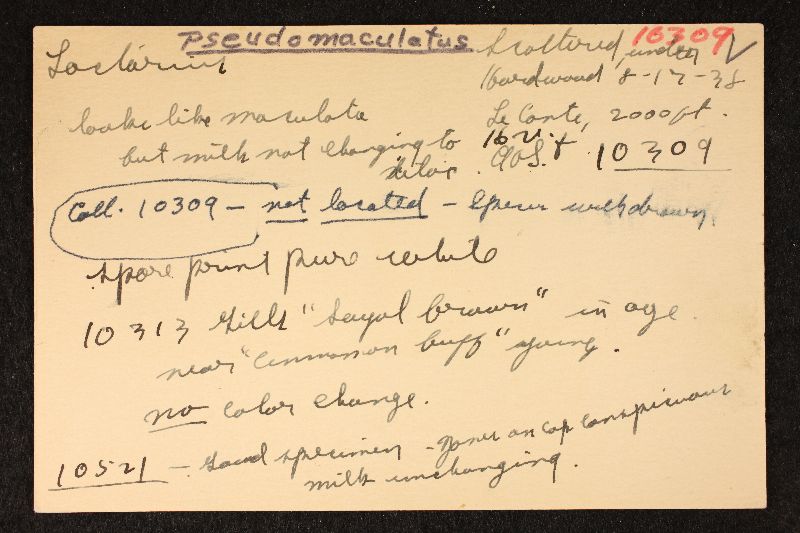 pseudomaculatus
16309 ✓
Lactarius
Scattered, under
Hardwood 8-17-38
looks like maculata
Le Conte, 2000 ft.
but milk not changing to
lilac.
10309
Coll. 10309 – not located – Specimen withdrawn
spore print pure white
10313 Gills "Sayal brown" in age.
near "Cinnamon buff" young.
no color change.
10521 – Good specimen – zones on cap conspicuous
milk unchanging.